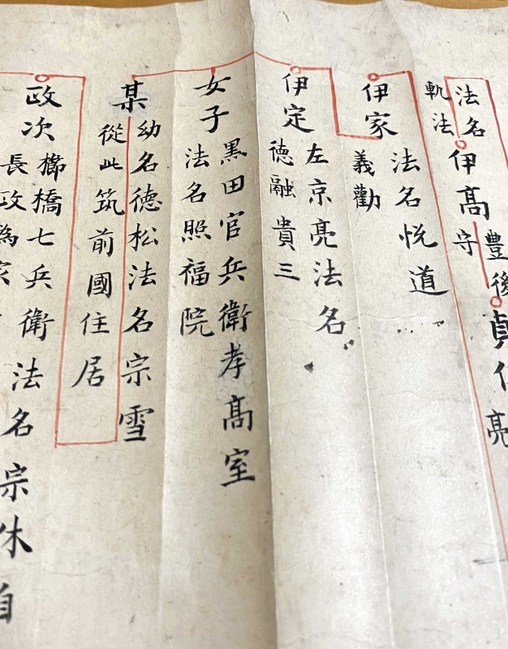 貞
亮
法名
軌法
伊髙
豊後
守
伊家
法名悦道
義勸
伊定
左京亮法名
徳融貴三
女子
黒田官兵衛孝髙室
法名照福院
某
幼名德松法名宗雪
從此筑前國住居
政次
櫛橋七兵衛法名宗休自
長政為家